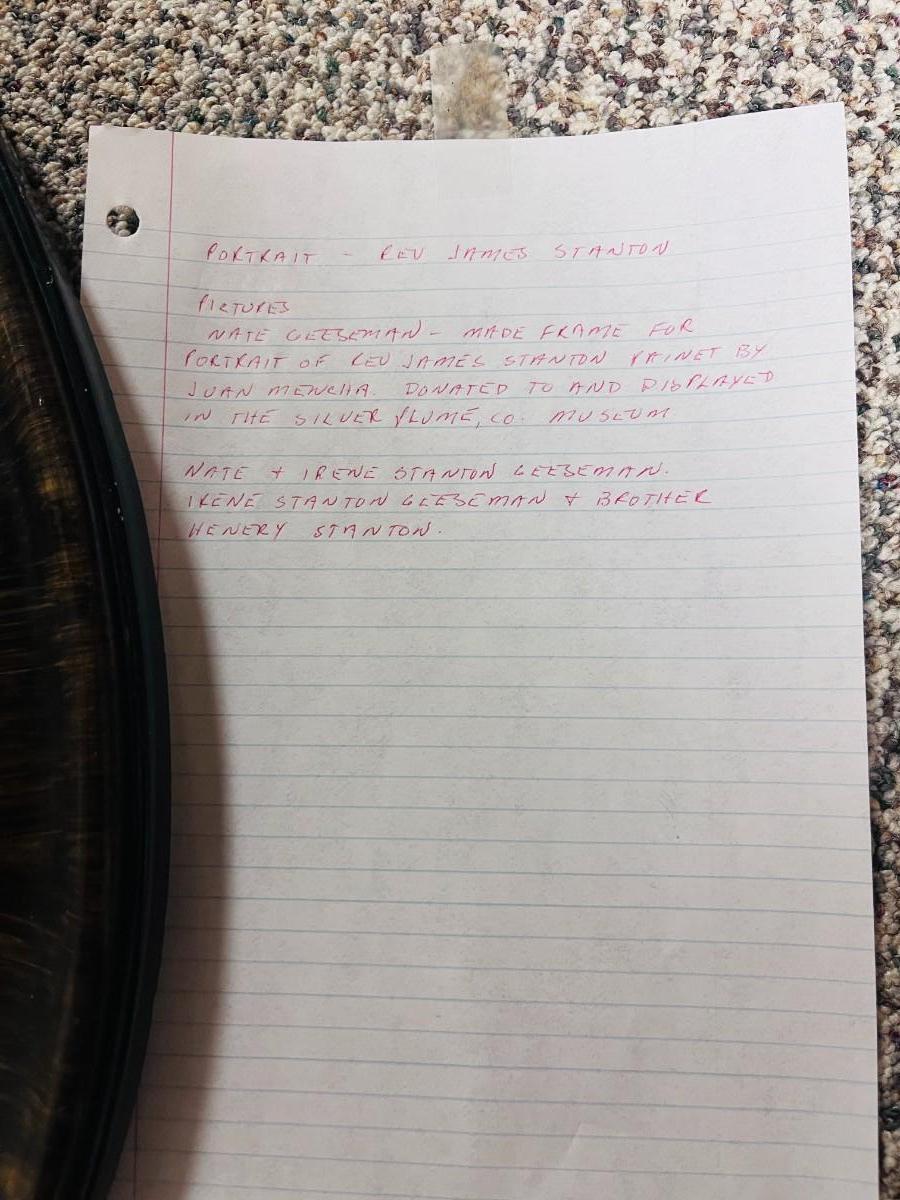 PORTRAIT - REV JAMES STANTON
PICTURES
NATE GEESEMAN - MADE FRAME FOR
PORTRAIT OF REV JAMES STANTON PAINET BY
JUAN MENCHA. DONATED TO AND DISPLAYED
IN THE SILVER PLUME, CO. MUSEUM
NATE + IRENE STANTON GEESEMAN.
IRENE STANTON GEESEMAN + BROTHER
HENERY STANTON.